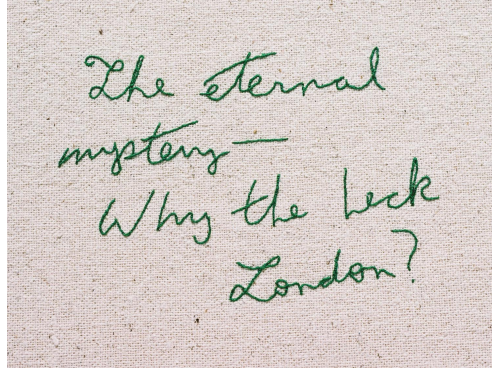 The eternal
mystery—
Why the heck
London?